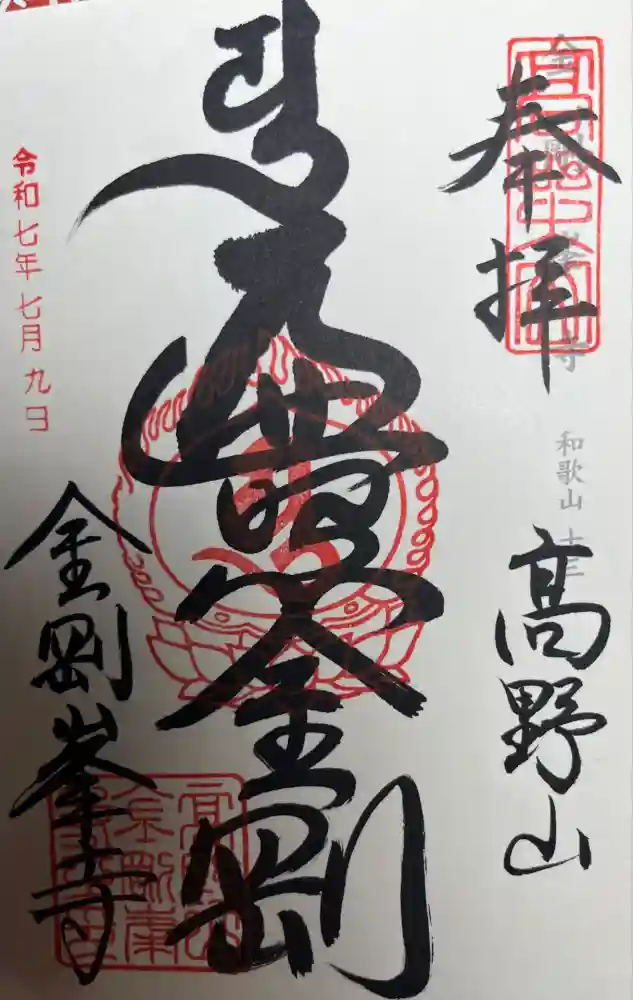 奉拝
高野山
金剛峯寺
和歌山 十三
遍照金剛
令和七年七月九日
金剛峯寺